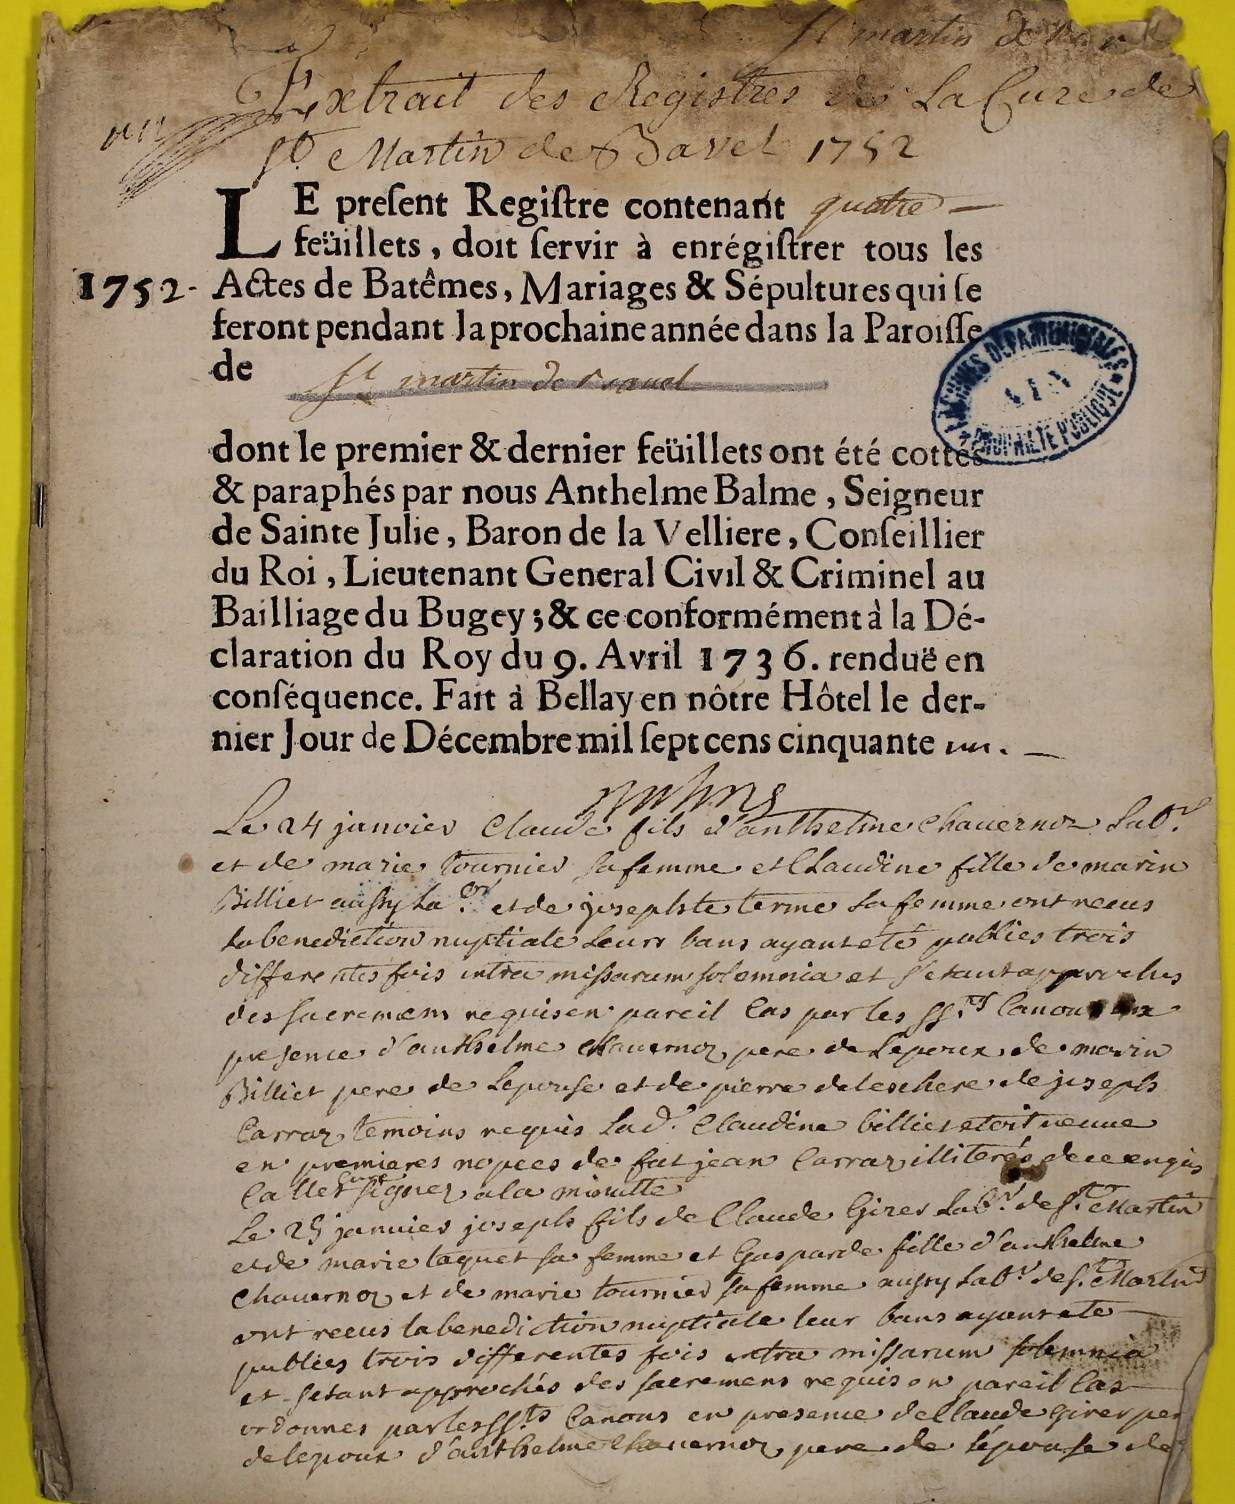 St martin de
Extrait des Registres de La Cure de
St Martin de Bavel 1752
LE preſent Regiſtre contenant quatre
feüillets, doit ſervir à enrégiſtrer tous les
1752. Actes de Batêmes, Mariages & Sépultures qui ſe
feront pendant la prochaine année dans la Paroiſſe
de St martin de Bavel
ARCHIVES DEPARTEMENTALES
AIN
PROPRIÉTÉ PUBLIQUE
dont le premier & dernier feüillets ont été cottés
& paraphés par nous Anthelme Balme, Seigneur
de Sainte Julie, Baron de la Velliere, Conſeillier
du Roi, Lieutenant General Civil & Criminel au
Bailliage du Bugey; & ce conformément à la Dé-
claration du Roy du 9. Avril 1736. renduë en
conſéquence. Fait à Bellay en nôtre Hôtel le der-
nier Jour de Décembre mil ſept cens cinquante un.
Le 24 janvier Claude fils d'anthelme Chavernoz Labr.
et de marie tournier sa femme et Claudine fille de marin
Billiet aussy La.or et de josephte terme sa femme ont receus
la benediction nuptiale leurs bans ayant eté publies trois
differentes fois intra missarum solemnia et s'etant approchés
des sacremens requis en pareil Cas par les SS.ts Canons
presence d'anthelme Chavernoz pere de Lepoux de marin
Billiet pere de Lepouse et de pierre delechere de joseph
Carraz temoins requis Lad. Claudine billiet etoit veuve
en premieres nopces de fut jean Carraz illiterés de ce enquis
Callet Curé signez a la minutte
Le 25 janvier joseph fils de Claude Girer Labr. de St. Martin
et de marie taquet sa femme et Gasparde fille d'anthelme
Chavernoz et de marie tournier sa femme aussy Labr de St. Martin
ont receus la benediction nuptiale leur bans ayant eté
publies trois differentes fois intra missarum solemnia
et setant approchés des sacremens requis en pareil Cas
ordonnes par les SSts Canons en presence de Claude Girer per
de lepoux d'anthelme Chavernoz pere de l'épouse de